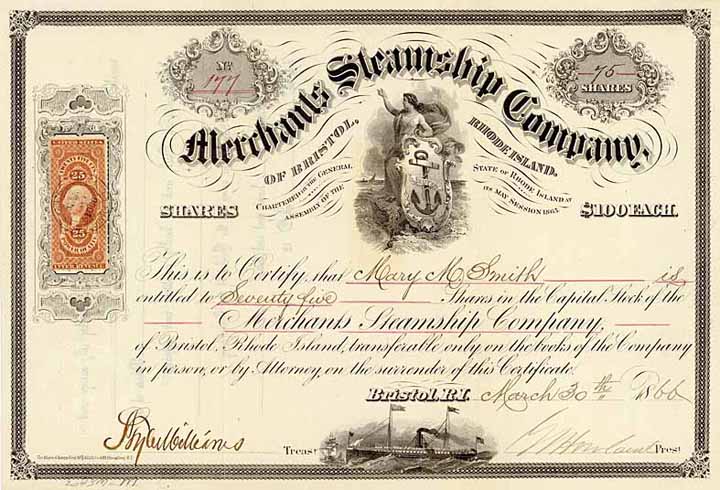 No.
177
75
SHARES
Merchants Steamship Company,
OF BRISTOL, RHODE ISLAND.
CHARTERED BY THE GENERAL STATE OF RHODE ISLAND AT
ASSEMBLY OF THE ITS MAY SESSION 1863.
UNITED STATES
25
25
INTER. REVENUE
SHARES $100 EACH.
This is to Certify, that Mary M. Smith is
entitled to Seventy five Shares in the Capital Stock of the
Merchants Steamship Company,
of Bristol, Rhode Island, transferable only on the books of the Company
in person, or by Attorney, on the surrender of this Certificate.
Bristol, R.I. March 30th 1866
Treasr
Prest